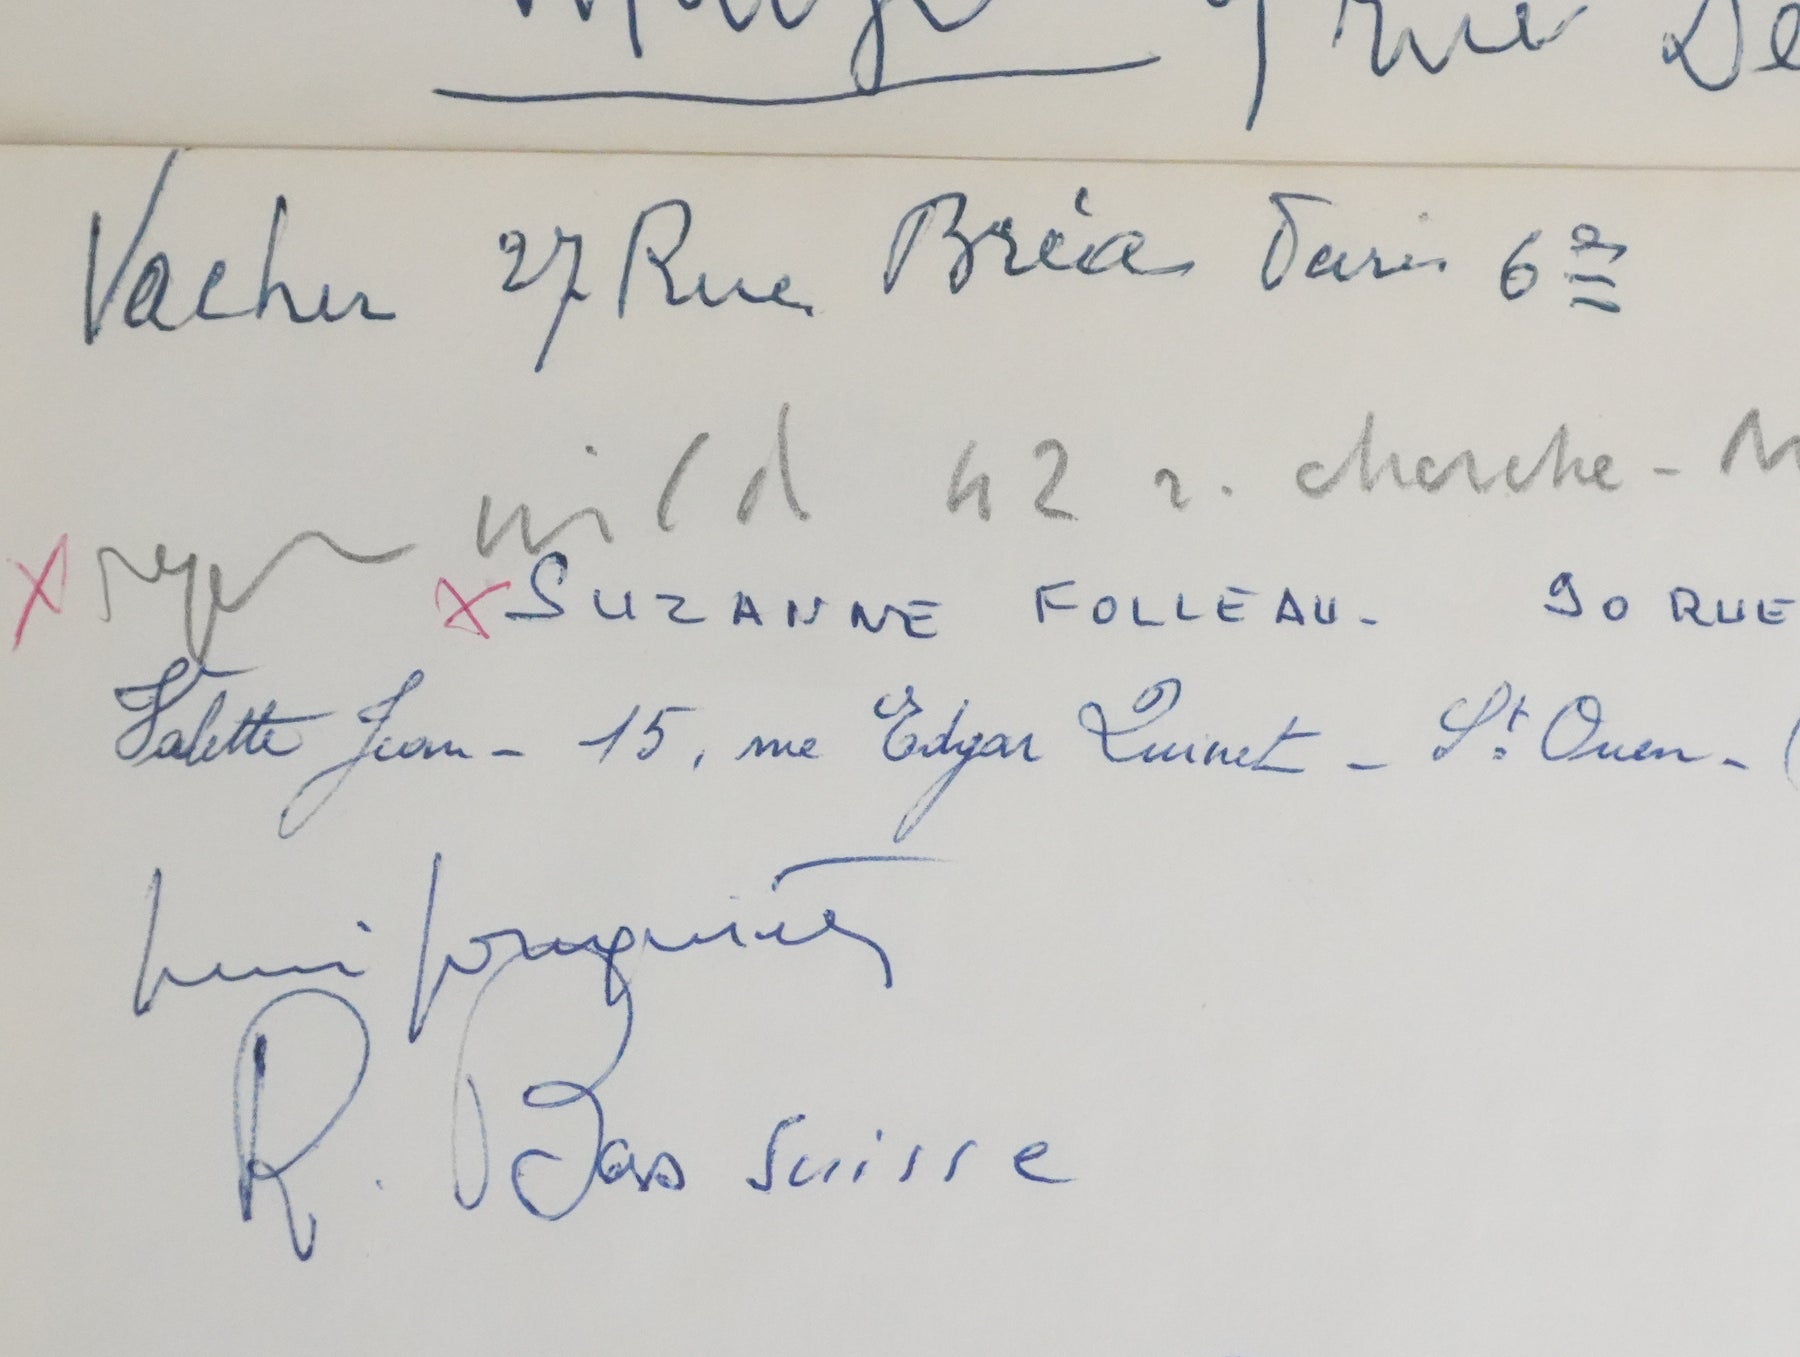 rue De
Vacher 27 Rue Bréa Paris 6e
roger wild 42 r. cherche-M
x SUZANNE FOLLEAU. 90 RUE
Valette Jean - 15, rue Edgar Quinet - St. Ouen - (
R. Bas Suisse